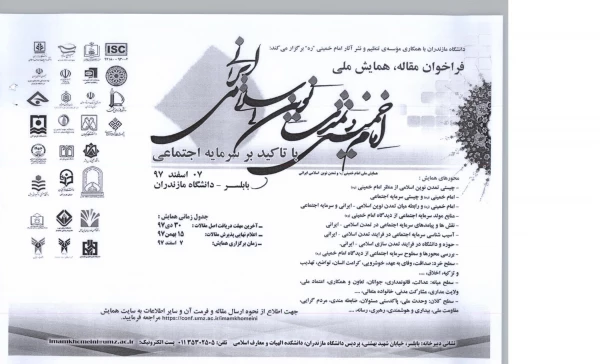 دانشگاه مازندران با همکاری موسسه‌ی تنظیم و نشر آثار امام خمینی "ره" برگزار می کند:
فراخوان مقاله، همایش ملی
امام خمینی و تمدن نوین اسلامی ایرانی
با تاکید بر سرمایه اجتماعی
۰۷ اسفند ۹۷
بابلسر - دانشگاه مازندران
ISC
جدول زمانی همایش:
آخرین مهلت دریافت اصل مقالات: ۳۰ دی ۹۷
اعلام نهایی پذیرش مقالات: ۱۵ بهمن ۹۷
زمان برگزاری همایش: ۷ اسفند ۹۷
محورهای همایش:
- چیستی تمدن نوین اسلامی از منظر امام خمینی
- امام خمینی و چیستی سرمایه اجتماعی
- امام خمینی و رابطه میان تمدن نوین اسلامی - ایرانی و سرمایه اجتماعی
- منابع مولد سرمایه اجتماعی از دیدگاه امام خمینی
- نقش ها و پیامدهای سرمایه اجتماعی در تمدن اسلامی - ایرانی
- آسیب شناسی سرمایه اجتماعی در فرایند تمدن اسلامی - ایرانی
- حوزه و دانشگاه در فرایند تمدن سازی اسلامی - ایرانی
- بررسی محورها و سطوح سرمایه اجتماعی از دیدگاه امام خمینی
- سطح خرد: صداقت، وفای به عهد، خوشرویی، کرامت انسان، تواضع، تهذیب
و تزکیه، اخلاق، ...
- سطح میانه: عدالت، قانونمداری، جوانان، تعاون و همکاری، اعتماد ملی،
ولایت مداری، مشارکت مدنی، خانواده متعالی، ...
- سطح کلان: وحدت ملی، پاکدستی مسئولان، جامعه مدنی، مردم گرایی،
مقاومت ملی، بیداری و هوشمندی، رهبری، رسانه، ...
جهت اطلاع از نحوه ارسال مقاله و فرمت آن و سایر اطلاعات به سایت همایش
https://conf.umz.ac.ir/imamkhomeini مراجعه فرمایید.
نشانی دبیرخانه: بابلسر، خیابان شهید بهشتی، پردیس دانشگاه مازندران، دانشکده الهیات و معارف اسلامی تلفن: ۰۱۱۳۵۳۰۲۵۰۵ پست الکترونیک: imamkhomeini@umz.ac.ir